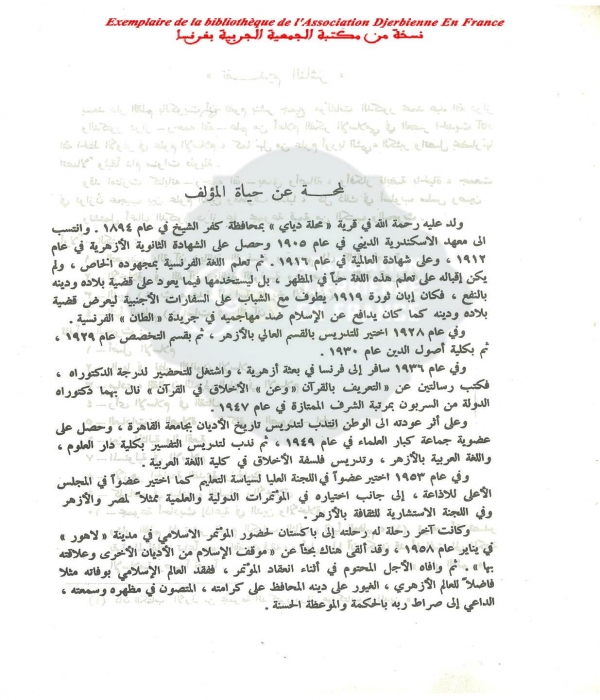 Exemplaire de la bibliothèque de l'Association Djerbienne En France
نسخة من مكتبة الجمعية الجربية بفرنسا
لمحة عن حياة المؤلف
ولد عليه رحمة الله في قرية « محلة دياي » بمحافظة كفر الشيخ في عام ١٨٩٤ . وانتسب
الى معهد الاسكندرية الديني في عام ١٩٠٥ وحصل على الشهادة الثانوية الأزهرية في عام
١٩١٢ ، وعلى شهادة العالمية في عام ١٩١٦ . ثم تعلم اللغة الفرنسية بمجهوده الخاص ، ولم
يكن إقباله على تعلم هذه اللغة حباً في المظهر ، بل ليستخدمها فيما يعود على قضية بلاده ودينه
بالنفع ، فكان إبان ثورة ١٩١٩ يطوف مع الشباب على السفارات الأجنبية ليعرض قضية
بلاده ودينه كما كان يدافع عن الإسلام ضد مهاجميه في جريدة « الطان » الفرنسية .
وفي عام ١٩٢٨ اختير للتدريس بالقسم العالي بالأزهر ، ثم بقسم التخصص عام ١٩٢٩ ،
ثم بكلية أصول الدين عام ١٩٣٠ .
وفي عام ١٩٣٦ سافر إلى فرنسا في بعثة أزهرية ، واشتغل للتحضير لدرجة الدكتوراه ،
فكتب رسالتين عن «التعريف بالقرآن » وعن « الأخلاق في القرآن » نال بهما دكتوراه
الدولة من السربون بمرتبة الشرف الممتازة في عام ١٩٤٧ .
وعلى أثر عودته الى الوطن انتدب لتدريس تاريخ الأديان بجامعة القاهرة ، وحصل على
عضوية جماعة كبار العلماء في عام ١٩٤٩ ، ثم ندب لتدريس التفسير بكلية دار العلوم ،
واللغة العربية بالأزهر ، وتدريس فلسفة الأخلاق في كلية اللغة العربية .
وفي عام ١٩٥٣ اختير عضواً في اللجنة العليا لسياسة التعليم كما اختير عضواً في المجلس
الأعلى للاذاعة ، إلى جانب اختياره في المؤتمرات الدولية والعلمية ممثلاً لمصر والأزهر
وفي اللجنة الاستشارية للثقافة بالأزهر .
وكانت آخر رحلة له رحلته إلى باكستان لحضور المؤتمر الاسلامي في مدينة « لاهور »
في يناير عام ١٩٥٨ ، وقد ألقى هناك بحثاً عن « موقف الإسلام من الأديان الأخرى وعلاقته
بها » . ثم وافاه الأجل المحتوم في أثناء انعقاد المؤتمر ، ففقد العالم الإسلامي بوفاته مثلا
فاضلاً للعالم الأزهري ، الغيور على دينه المحافظ على كرامته ، المتصون في مظهره وسمعته ،
الداعي إلى صراط ربه بالحكمة والموعظة الحسنة .